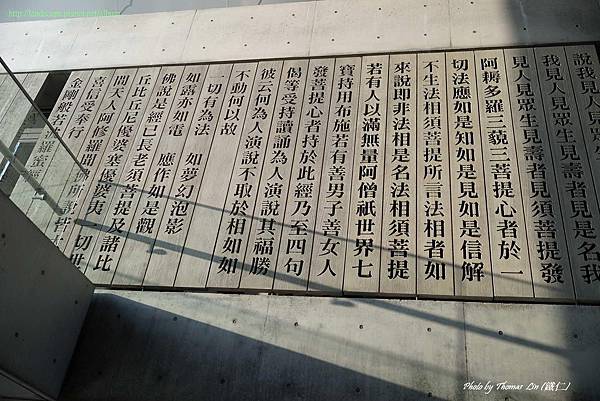 http://landscape.pixnet.net/album
說我見人見眾生
我見人見眾生見壽者見是名我
見人見眾生見壽者見須菩提發
阿耨多羅三藐三菩提心者於一
切法應如是知如是見如是信解
不生法相須菩提所言法相者如
來說即非法相是名法相須菩提
若有人以滿無量阿僧祇世界七
寶持用布施若有善男子善女人
發菩提心者持於此經乃至四句
偈等受持讀誦為人演說其福勝
彼云何為人演說不取於相如如
不動何以故
一切有為法 如夢幻泡影
如露亦如電 應作如是觀
佛說是經已長老須菩提及諸比
丘比丘尼優婆塞優婆夷一切世
間天人阿修羅聞佛所說皆大
喜信受奉行
金剛般若波羅蜜經
Photo by Thomas Lin (鐵仁)